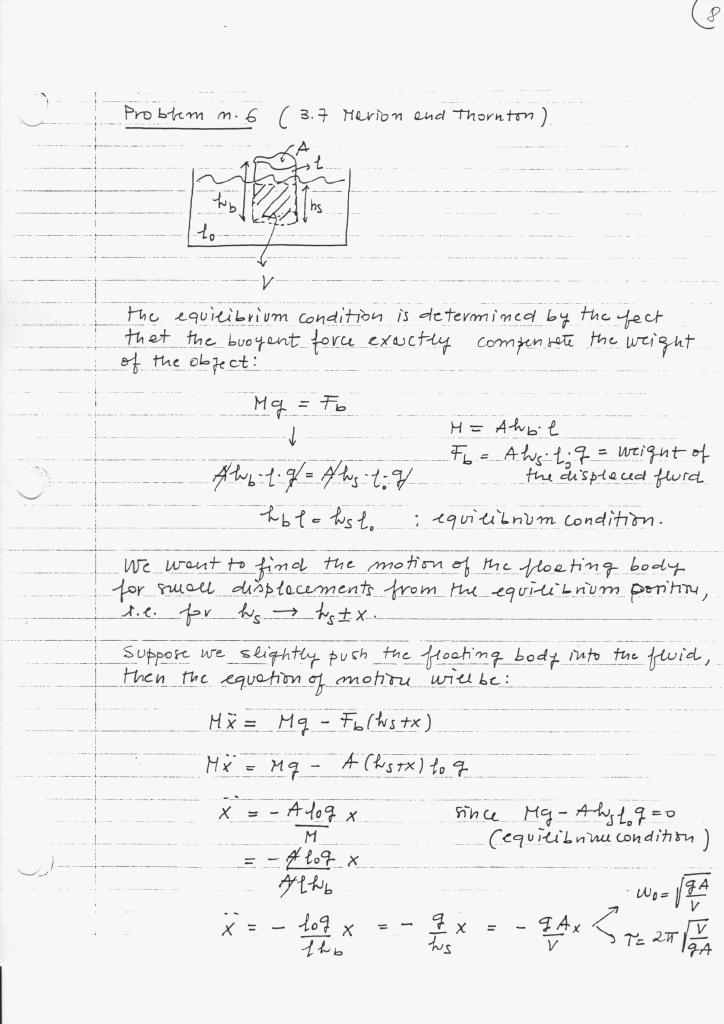 8
Problem n. 6 ( 3.7 Marion and Thornton )
A
ρ
h_b
h_s
ρ₀
V
The equilibrium condition is determined by the fact
that the buoyant force exactly compensate the weight
of the object:
Mg = F_b
↓
M = A h_b · ρ
F_b = A h_s · ρ₀ g = weight of
the displaced fluid
A h_b · ρ · g = A h_s · ρ₀ · g
h_b ρ = h_s ρ₀ : equilibrium condition.
We want to find the motion of the floating body
for small displacements from the equilibrium position,
i.e. for h_s → h_s ± x.
Suppose we slightly push the floating body into the fluid,
then the equation of motion will be:
Mẍ = Mg - F_b (h_s + x)
Mẍ = Mg - A (h_s + x) ρ₀ g
ẍ = - A ρ₀ g / M x since Mg - A h_s ρ₀ g = 0
(equilibrium condition)
= - A ρ₀ g / A ρ h_b x
ẍ = - ρ₀ g / ρ h_b x = - g / h_s x = - g A / V x
ω₀ = √(gA / V)
τ = 2π √(V / gA)